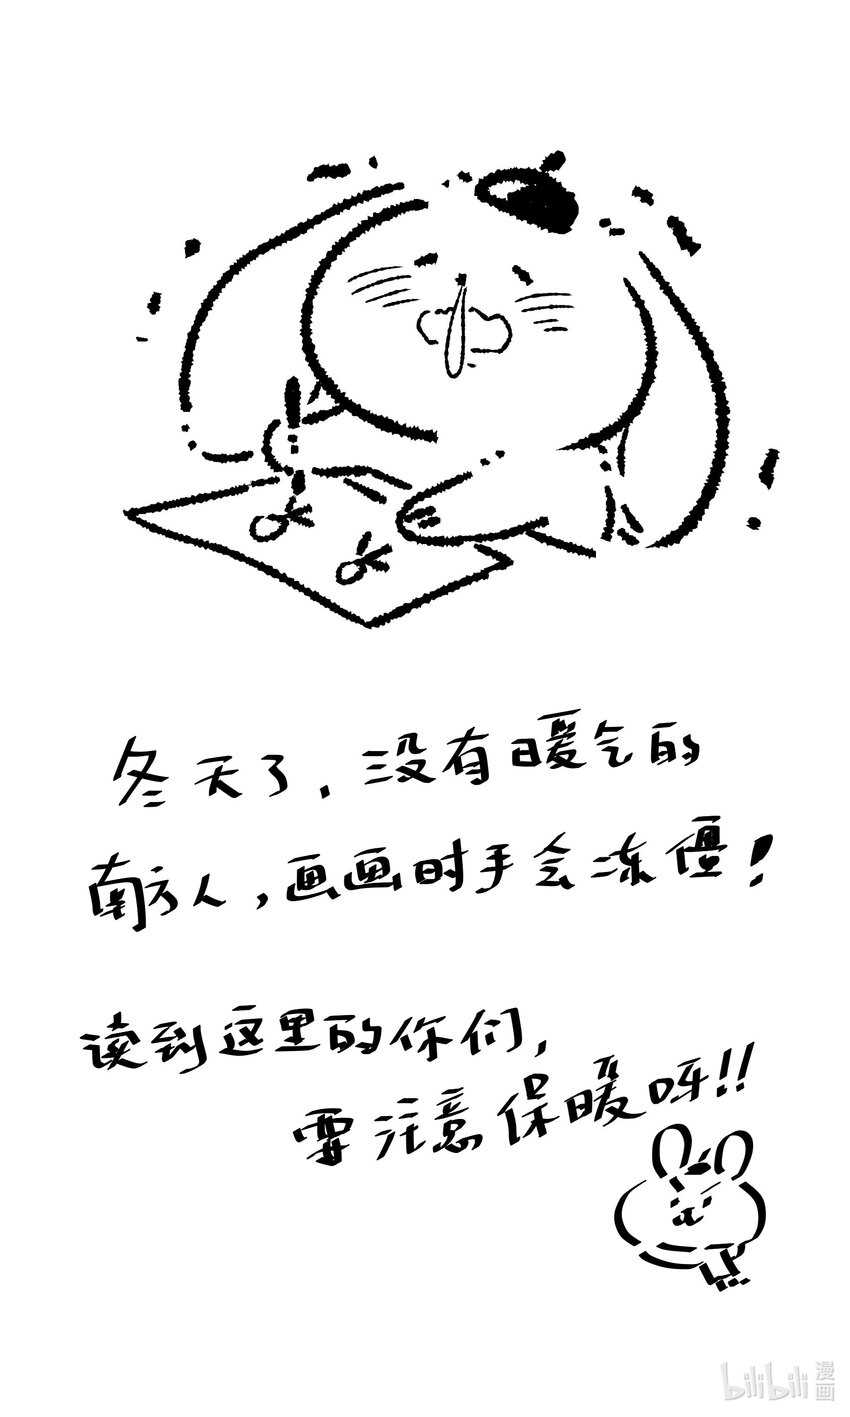 冬天了，没有暖气的
南方人，画画时手会冻僵！
读到这里的你们，
要注意保暖呀！！
bilibili 漫画